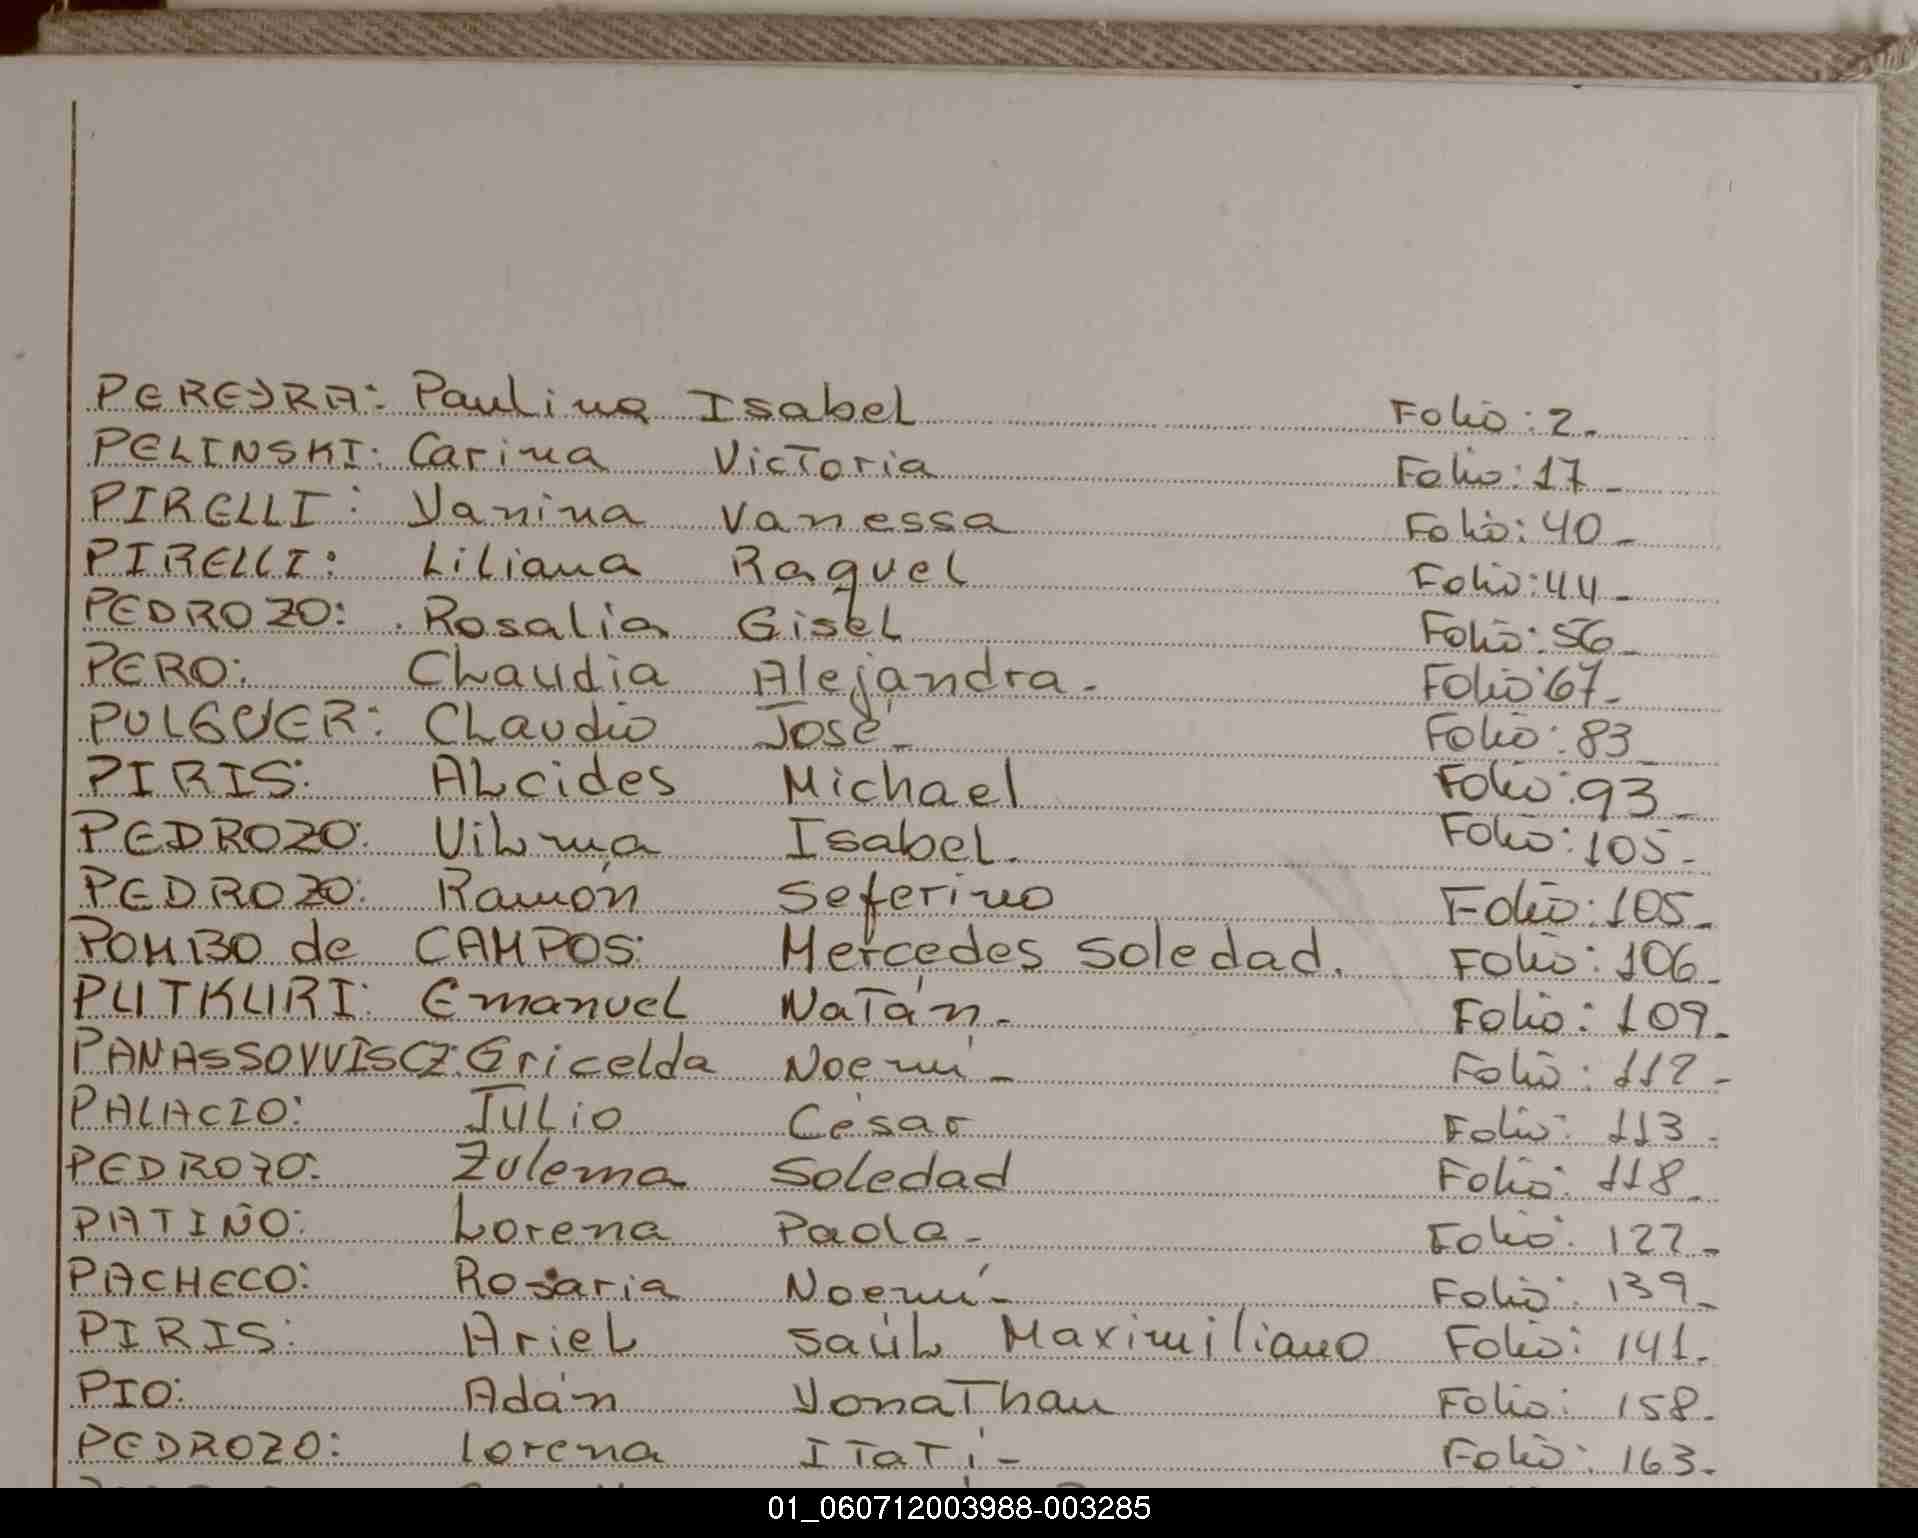 PEREYRA: Paulina Isabel Folio: 2_
PELINSKI: Carina Victoria Folio: 17_
PIRELLI: Yanina Vanessa Folio: 40_
PIRELLI: Liliana Raquel Folio: 44_
PEDROZO: Rosalia Gisel Folio: 56_
PERO: Claudia Alejandra_ Folio: 67_
PULGUER: Claudio José_ Folio: 83_
PIRIS: Alcides Michael Folio: 93_
PEDROZO: Vilma Isabel. Folio: 105_
PEDROZO: Ramón Seferino Folio: 105_
POMBO de CAMPOS: Mercedes Soledad. Folio: 106_
PUTKURI: Emanuel Natán_ Folio: 109_
PANASSOWISCZ: Gricelda Noemí_ Folio: 112_
PALACIO: Julio César Folio: 113_
PEDROZO: Zulema Soledad Folio: 118_
PATIÑO: Lorena Paola_ Folio: 122_
PACHECO: Rosaria Noemí_ Folio: 139_
PIRIS: Ariel Saúl Maximiliano Folio: 141_
PIO: Adán Yonathan Folio: 158_
PEDROZO: Lorena Itatí_ Folio: 163_
01_060712003988-003285